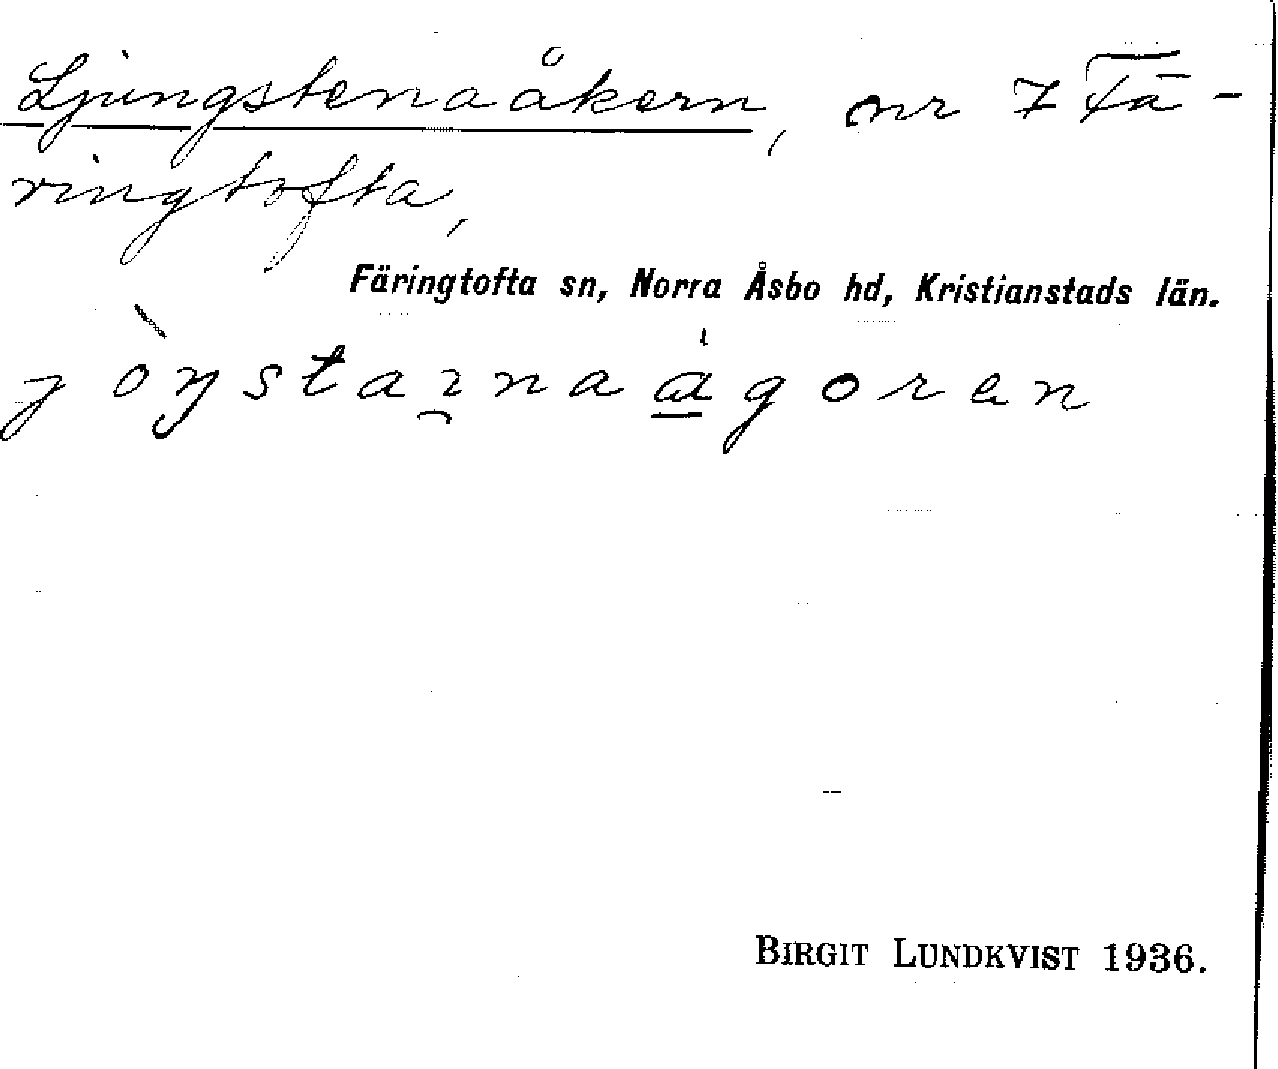 Ljungstenaåkern, nr 7 Fä-
ringtofta,
Färingtofta sn, Norra Åsbo hd, Kristianstads län.
BIRGIT LUNDKVIST 1936.